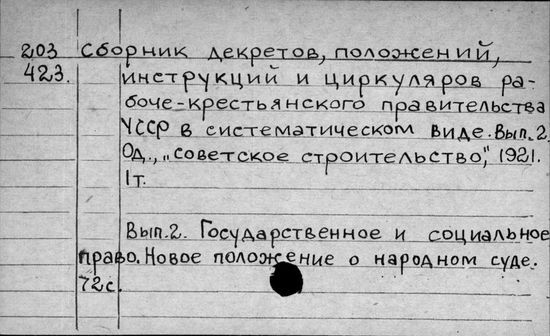 203 Сборник декретов, положений,
423. инструкций и циркуляров ра-
боче-крестьянского правительства
УССР в систематическом виде. Вып. 2.
Од., „Советское строительство", 1921.
1т.
Вып. 2. Государственное и социальное
право. Новое положение о народном суде.
72с.